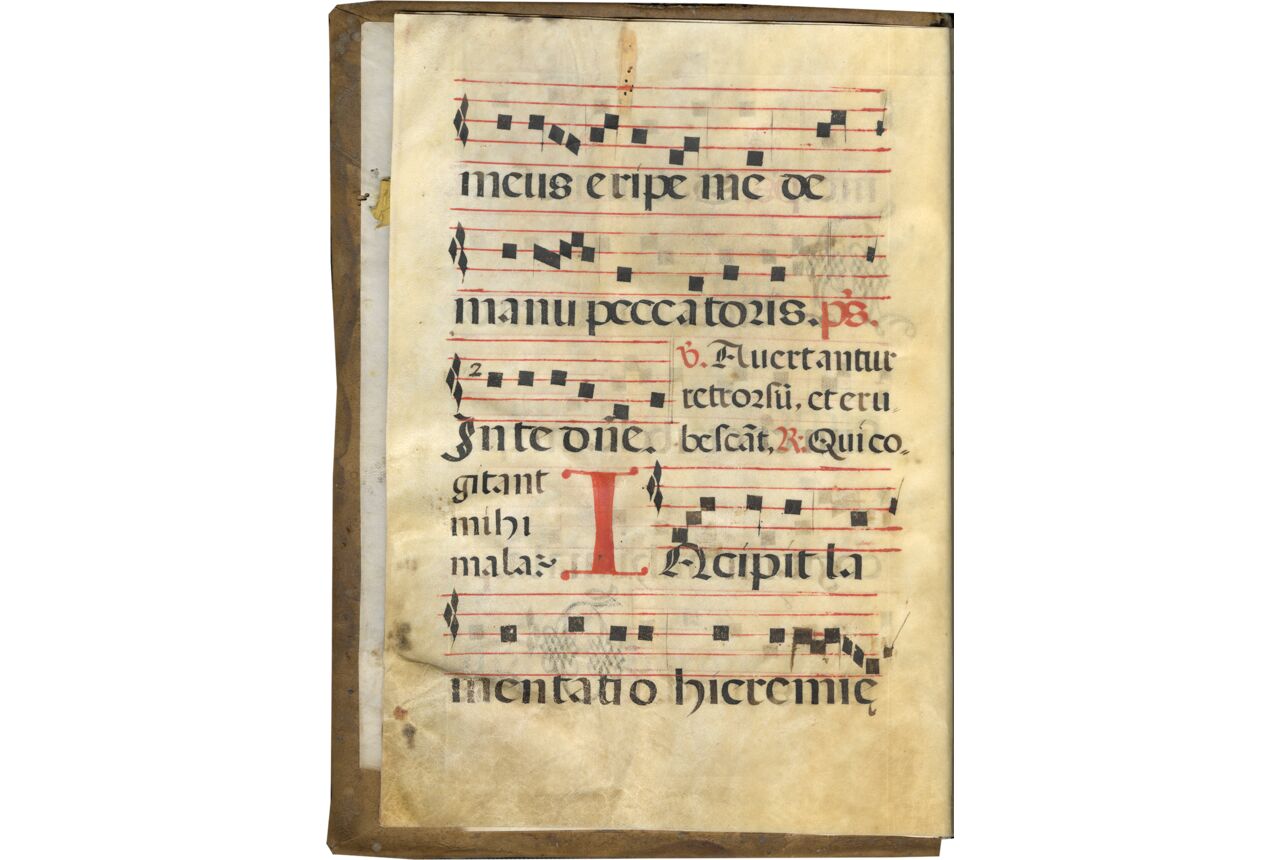 meus eripe me de
manu peccatoris. ps̃.
2
In te dñe.
℣. Auertantur
retrorsũ, et eru-
bescãt, R. Qui co-
gitant
mihi
mala
I Ncipit la
mentatio hieremię